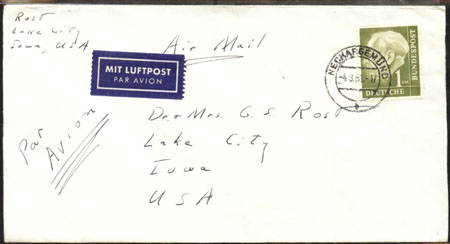 Rost
Lake City
Iowa, USA
Air Mail
MIT LUFTPOST
PAR AVION
NECKARGEMÜND
1
DEUTSCHE
BUNDESPOST
Par
Avion
Dr + Mrs. G. S. Rost
Lake City
Iowa
USA